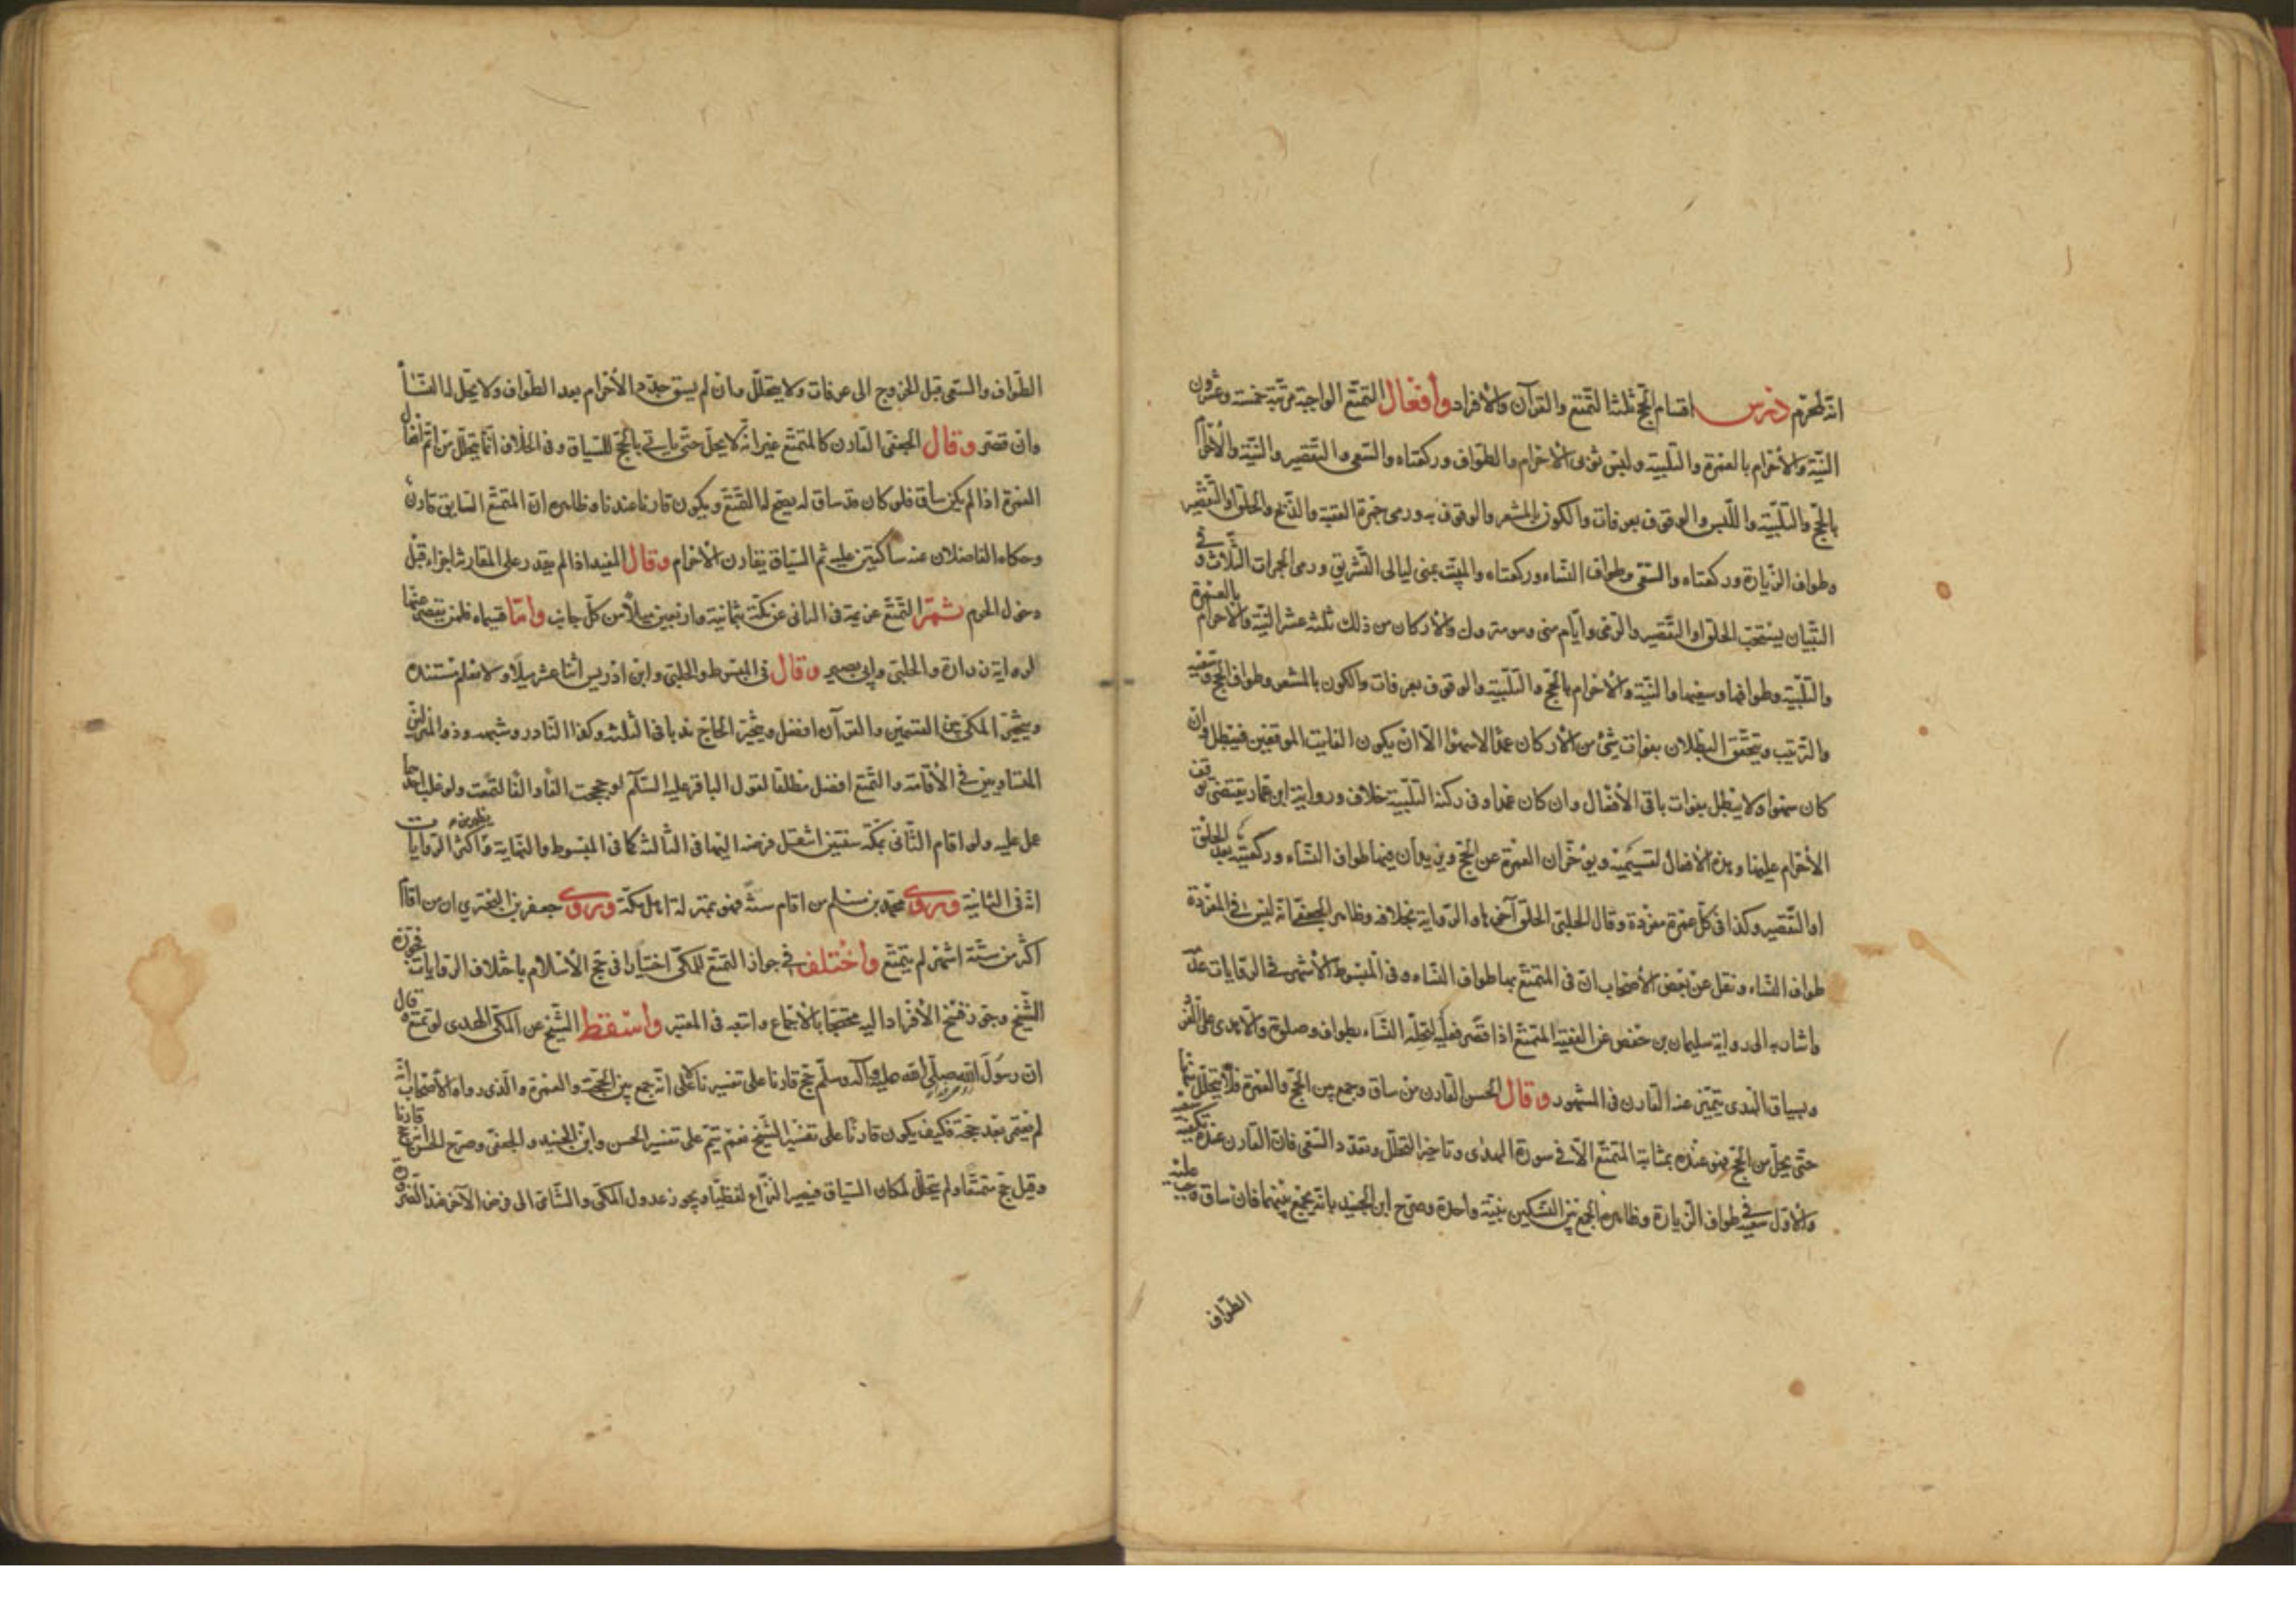 انه لمحرم درس اقسام الحج ثلثة التمتع والقرآن والافراد وافعال التمتع الواجبة مرتبة خمسة وعشرون
النية والاحرام بالعمرة والتلبية ولبس ثوبي الاحرام والطواف وركعتاه والسعي والتقصير والنية والاحرام
بالحج والتلبية واللبس والوقوف بعرفات والكون بالمشعر والوقوف به ورمي جمرة العقبة والذبح والحلق او التقصير
وطواف الزيارة وركعتاه والسعي وطواف النساء وركعتاه والمبيت بمنى ليالي التشريق ورمي الجمرات الثلاث وفي
التبيان يستحب الحلق او التقصير والرمي وايام منى وهو متروك والاركان من ذلك ثلثة عشر النية والاحرام بالعمرة
والتلبية وطوافها وسعيها والنية والاحرام بالحج والتلبية والوقوف بعرفات والكون بالمشعر وطواف الحج وسعيه
والترتيب ويتحقق البطلان بفوات شئ من الاركان عمدا لا سهوا الا ان يكون الفايت الموقفين فيبطل وان
كان سهوا ولا يبطل بفوات باقي الافعال وان كان عمدا وفي ركنية التلبية خلاف ورواية ابن عمار يقتضي توقف
الاحرام عليها وهذه الافعال لقسيميه ويؤخران العمرة عن الحج ويزيدان فيها طواف النساء وركعتيه بعد الحلق
او التقصير وكذا في كل عمرة مفردة وقال الحلبي الحلق آخرها والرواية بخلافه وظاهر الجعفي انه ليس في المفردة
طواف النساء ونقل عن بعض الاصحاب ان في المتمتع بها طواف النساء وفي المبسوط الاشهر في الروايات عدمه
واشار به الى رواية سليمان بن حفص عن الفقيه المتمتع اذا قصر فعليه لتحلة النساء طواف وصلوة
وبسياق الهدي يتميز عنه القارن في المشهور وقال الحسن القارن من ساق وجمع بين الحج والعمرة فلا يتحلل منها
حتى يحل من الحج فهو عنده بمثابة المتمتع الا في سوق الهدي وتاخير التحلل وتعدد السعي فان القارن عنده يكفيه سعيه
الاول عن سعيه في طواف الزيارة وظاهره الجمع بين النسكين بنية واحدة وصرح ابن الجنيد بانه يجمع بينهما فان ساق وجب عليه
الطواف
الطواف والسعي قبل الخروج الى عرفات ولا يتحلل وان لم يسق جدد الاحرام بعد الطواف ولا يحل له النساء
وان قصر وقال الجعفي القارن كالمتمتع غير انه لا يحل حتى ياتي بالحج للسياق وفي الخلاف انما يتحلل من اتم افعال
العمرة اذا لم يكن ساق فلو كان قد ساق لم يصح له التمتع ويكون قارنا عندنا وظاهره ان المتمتع السايق قارن
وحكاه الفاضلان عنه ساكتين عليه ثم السياق يقارن الاحرام وقال المفيد اذا لم يقدر على المقارنة اجزأه قبل
دخول الحرم ثم التمتع عزيمة في النائي عن مكة بثمانية واربعين ميلا من كل جانب واما قسيماه فلمن ينقص عنها
لرواية زرارة والحلبي وابي بصير وقال في المبسوط والحلبي وابن ادريس اثنا عشر ميلا ولا نعلم مستنده
ويتخير المكي بين القسمين والقرآن افضل ويتخير الحاج ندبا في الثلثة وكذا الناذر وشبهه وذو المنزلين
المتساويين في الاقامة والتمتع افضل مطلقا لقول الباقر عليه السلام لو حججت الفا والفا لتمتعت ولو غلب احدهما
عمل عليه ولو اقام النائي بمكة سنتين انتقل فرضه اليها في الثالثة كما في المبسوط والنهاية واكثر الروايات
انه في الثانية وروى محمد بن مسلم من اقام سنة فهو بمنزلة اهل مكة وروى حفص بن البختري ان من اقام
اكثر من ستة اشهر لم يتمتع واختلف في جواز التمتع للمكي اختيارا في حج الاسلام باختلاف الروايات فجوزه
الشيخ وجوز فسخ الافراد اليه محتجا بالاجماع واتبعه في المعتبر واسقط الشيخ عن المكي الهدي لو تمتع وقال
ان رسول الله صلى الله عليه وآله وسلم حج قارنا على تفسيرنا لا على انه جمع بين الحجة والعمرة والذي رواه الاصحاب انه
لم يعتمر بعد حجة فكيف يكون قارنا على تفسير الشيخ نعم يتم على تفسير الحسن وابن الجنيد والجعفي وصرح الحسن بانه حج قارنا
وقيل حج متمتعا ولم يتحلل لمكان السياق فيصير النزاع لفظيا ويجوز عدول المكي والنائي الى فرض الآخر عند الضرورة